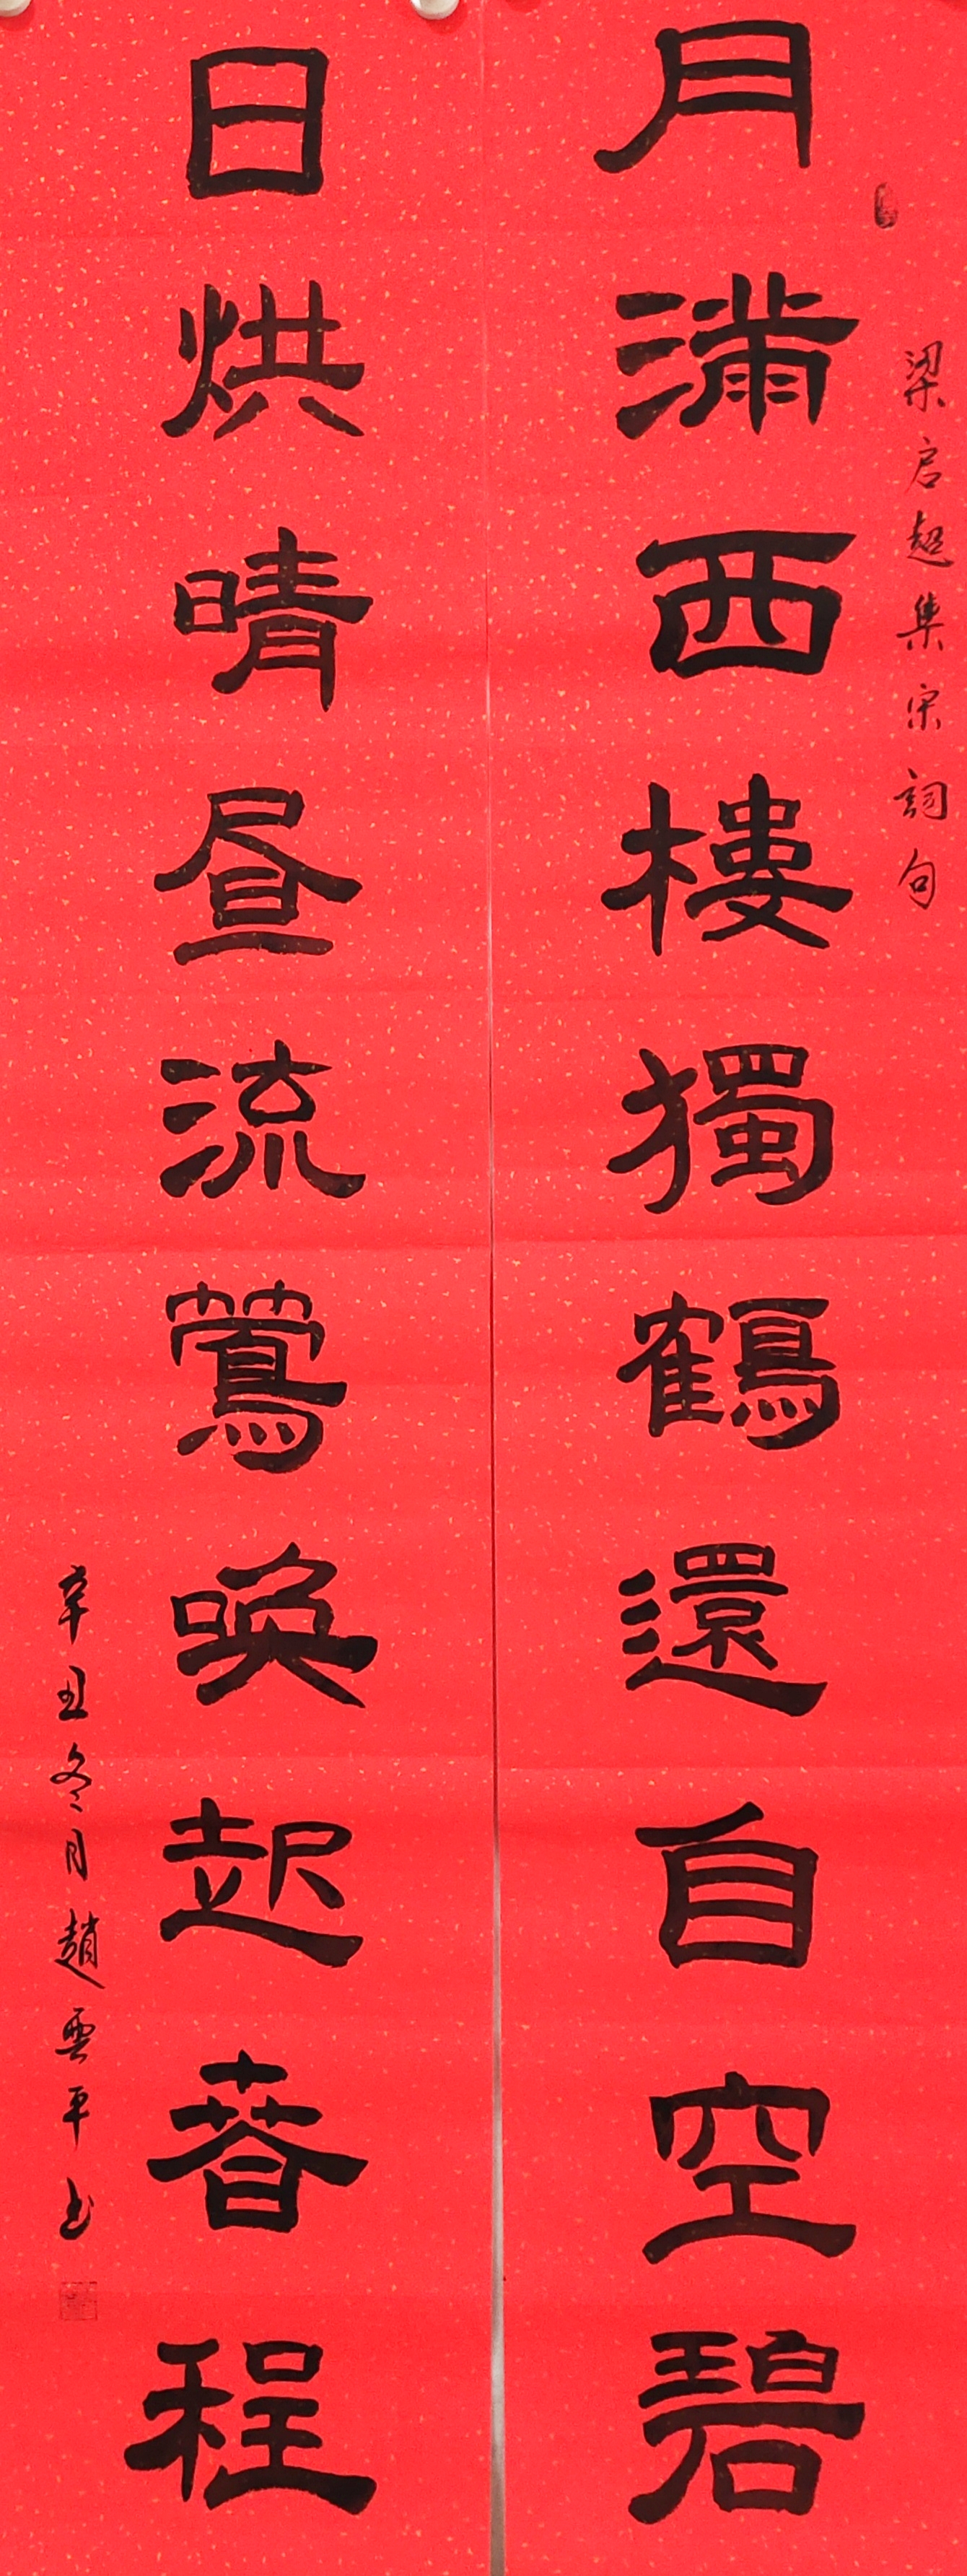 梁启超集宋詞句
月滿西樓獨鶴還自空碧
日烘晴昼流鶯唤起春程
辛丑冬月趙雲平书